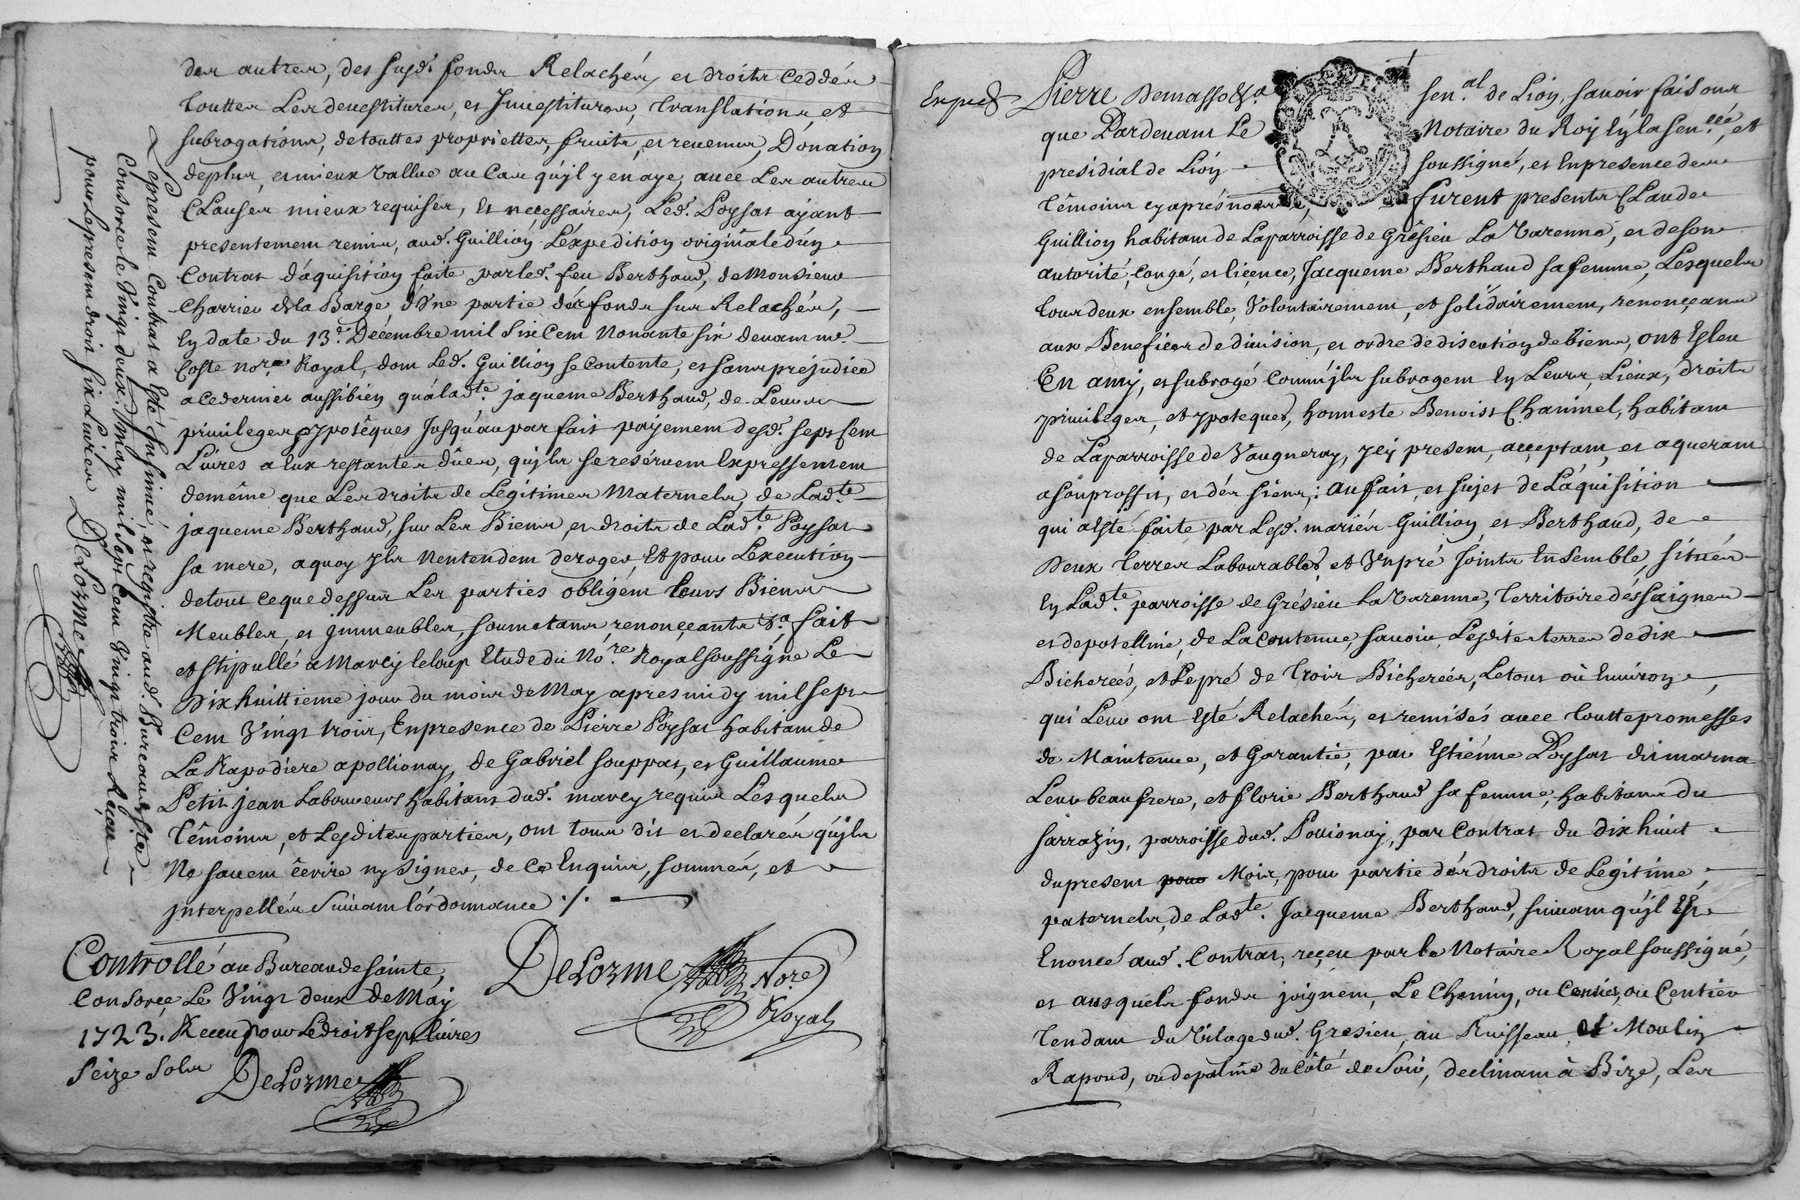 des autres, des susd. fonds Relachés, et droits ceddés
touttes Les devestitures, et Investitures, translations, et
subrogations, de touttes proprietes, fruits, et revenus, Donation
de plus, et mieux vallue au Cas qu'jl y en aye, avec Les autres
Clauses mieux requises, Et necessaires, Led. Poyssat ayant
presentement remis, aud. Guilliony L'expedition originale d'un
Contrat d'aquisition faite par led. feu Berthaud, de Monsieur
Charrier de la Barge, d'Une partie des fonds sus Relachés,
En date du 13.e Decembre mil Six Cent Nonante six devant me.
Coste no.re Royal, dont Led. Guilliony se Contente, et sans préjudice
a ce dernier aussi bien qu'à lad.te jaqueme Berthaud, de Leurs
privileges et ypotêques Jusqu'au parfait payement desd. sept Cent
Livres a Eux restantes dües, qu'jls se réservent Expressement
de même que Les droits de Légitimes Maternels de Lad.te
jaqueme Berthaud, sur Les Biens et droits de Lad.te Poyssat
sa mere, a quoy jls n'entendent deroger, Et pour L'execution
de tout ce que dessus Les parties obligent leurs Biens
Meubles, et Immeubles, soumetans renonçants &.a fait
et stipullé a Marcy le loup Etude du No.re Royal soussigné Le
Dix huittieme jour du mois de May apres midy mil sept
Cent Vingt trois, En presence de Pierre Poyssat habitant de
La Rapodiere a pollionay, de Gabriel souppat, et Guillaume
Petit jean Laboureurs habitans dud. marcy requis Lesquels
Têmoins, et Lesdites parties, ont tous dit et declarés qu'jls
Ne savent écrire ny signer, de ce Enquis, sommés, et
jnterpellés Suivant l'ordonnance ./.
Controllé au Bureau de Sainte
Consorce Le Vingt deux de May
1723. Receu pour Le droit sept livres
Seize Sols DeLorme
DeLorme No.re
Royal
Le present Contrat a Esté Insinué, et registré aud. Bureau de S.te
Consorce le Vingt deux May mil Sept Cent Vingt trois Reçeu
pour le present droit six Livres DeLorme
Exped
Pierre Demasso &.a sen.al de Lion, savoir faisons
que Pardevant Le Notaire du Roy En la sen.llé, et
presidial de Lion soussigné, et En presence des
Têmoins cy aprés nommés, furent presents Claude
Guilliony habitant de La parroisse de Grésieu La Varenne, et de son
autorité, congé, et licence, Jacqueme Berthaud sa femme, Lesquels
tous deux ensemble, Volontairement, et solidairement, renonçans
aux Benefices de division, et ordre de discution de biens, ont Esleu
En amy, et subrogé Comm'jls subrogent En Leurs, Lieux, droits
privileges, et ypoteques, honneste Benoist Chanimel, habitant
de La parroisse de Vaugneray, jcy present, acceptant, et aquerant
a son proffit, et des siens; Au fait, et sujet de L'aquisition
qui a Esté faite par Lesd. mariés Guilliony et Berthaud, de
Deux terres Labourables, et Un pré joints Ensemble, situés
En Lad.te parroisse de Grésieu la Varenne, territoire des saignes
et de potellimé, de La Contenue, savoir, Lesdites terres de dix
Bicherées, et Le pré de trois Bicherées, Le tout où Environ,
qui Leur ont Esté Relachés, et remisés avec toutte promesses
de Maintenue, et Garantie, par Estiénne Poyssat dit marna
Leur beaufrere, et florie Berthaud sa femme, habitans du
sarrazin, parroisse dud. Pollionay, par Contrat du dix huit
du present pour Mois, pour partie des droits de Legitime
paternels, de Lad.te Jacqueme Berthaud, suivant qu'jl Est
Enoncé aud. Contrat, reçeu par le Notaire Royal soussigné,
et ausquels fonds joignent, Le Chemin, ou Centier, ou Centier
tendant du Vilage dud. Grésieu, au Ruisseau, et Moulin
Rapoud, ou de palme du Côté de Soir, declinant à Bize, Les